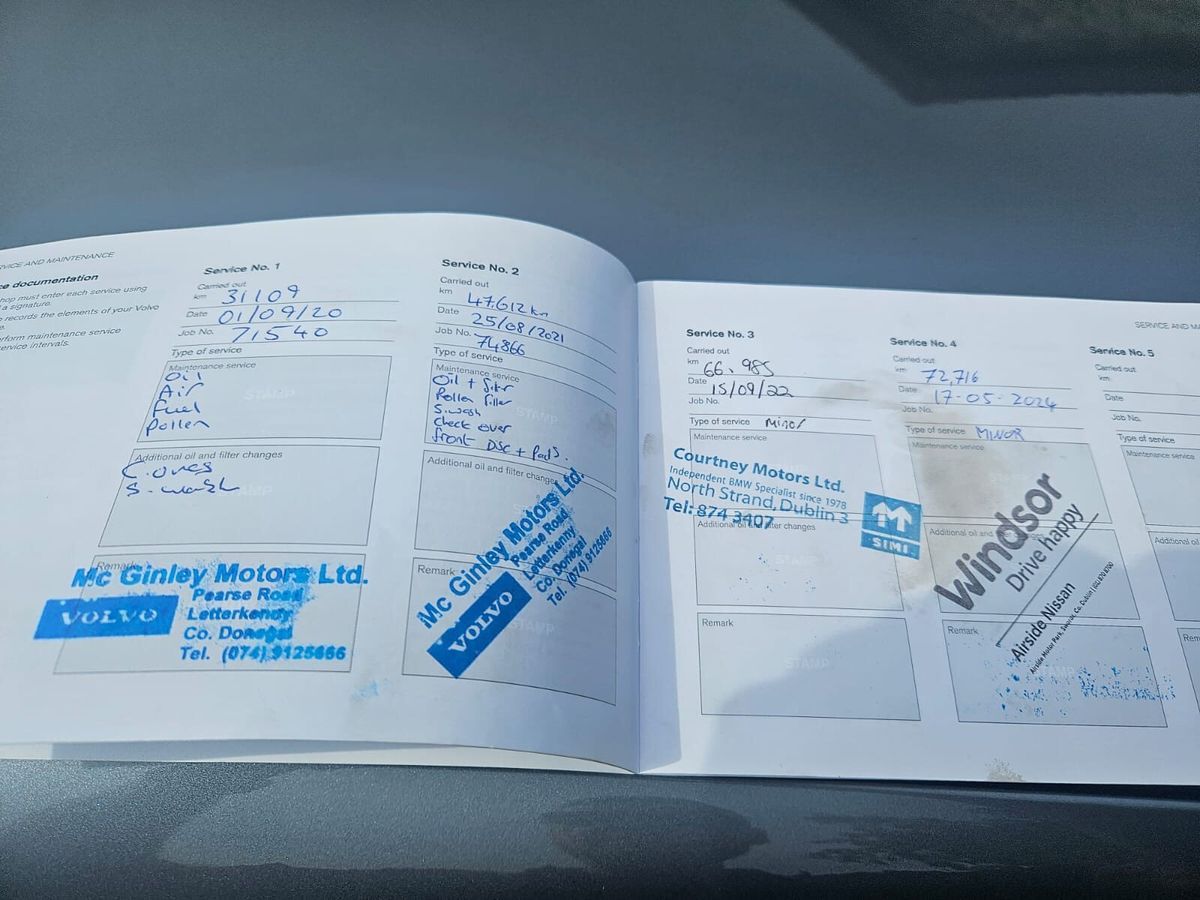 VICE AND MAINTENANCE
ce documentation
hop must enter each service using
a signature.
e records the elements of your Volvo
e.
rform maintenance service
ervice intervals.
Service No. 1
Carried out
km 31109
Date 01/09/20
Job No. 71540
Type of service
Maintenance service
Oil
Air
Fuel
Pollen
STAMP
Additional oil and filter changes
S. wash
Remark
Mc Ginley Motors Ltd.
VOLVO
Pearse Road
Letterkenny
Co. Donegal
Tel. (074) 9125666
Service No. 2
Carried out
km 47,612 km
Date 25/08/2021
Job No. 74866
Type of service
Maintenance service
Pollen filter
S.wash
check over
front Disc + Pads.
STAMP
Additional oil and filter changes
Remark
Mc Ginley Motors Ltd.
VOLVO
Pearse Road
Letterkenny
Co. Donegal
Tel. (074) 9125666
STAMP
Service No. 3
Carried out
km 66.985
Date 15/09/22
Job No.
Type of service Minor
Maintenance service
Courtney Motors Ltd.
Independent BMW Specialist since 1978
North Strand, Dublin 3
Tel: 874 3407
SIMI
Additional oil and filter changes
STAMP
Remark
STAMP
SERVICE AND MA
Service No. 4
Carried out
km 72,716
Date 17-05-2024
Job No.
Type of service MINOR
Maintenance service
Windsor
Drive happy
Additional oil and
Airside Nissan
Airside Motor Park, Swords, Co. Dublin
Remark
Service No. 5
Carried out
km
Date
Job No.
Type of service
Maintenance service
Additional oil
Remark